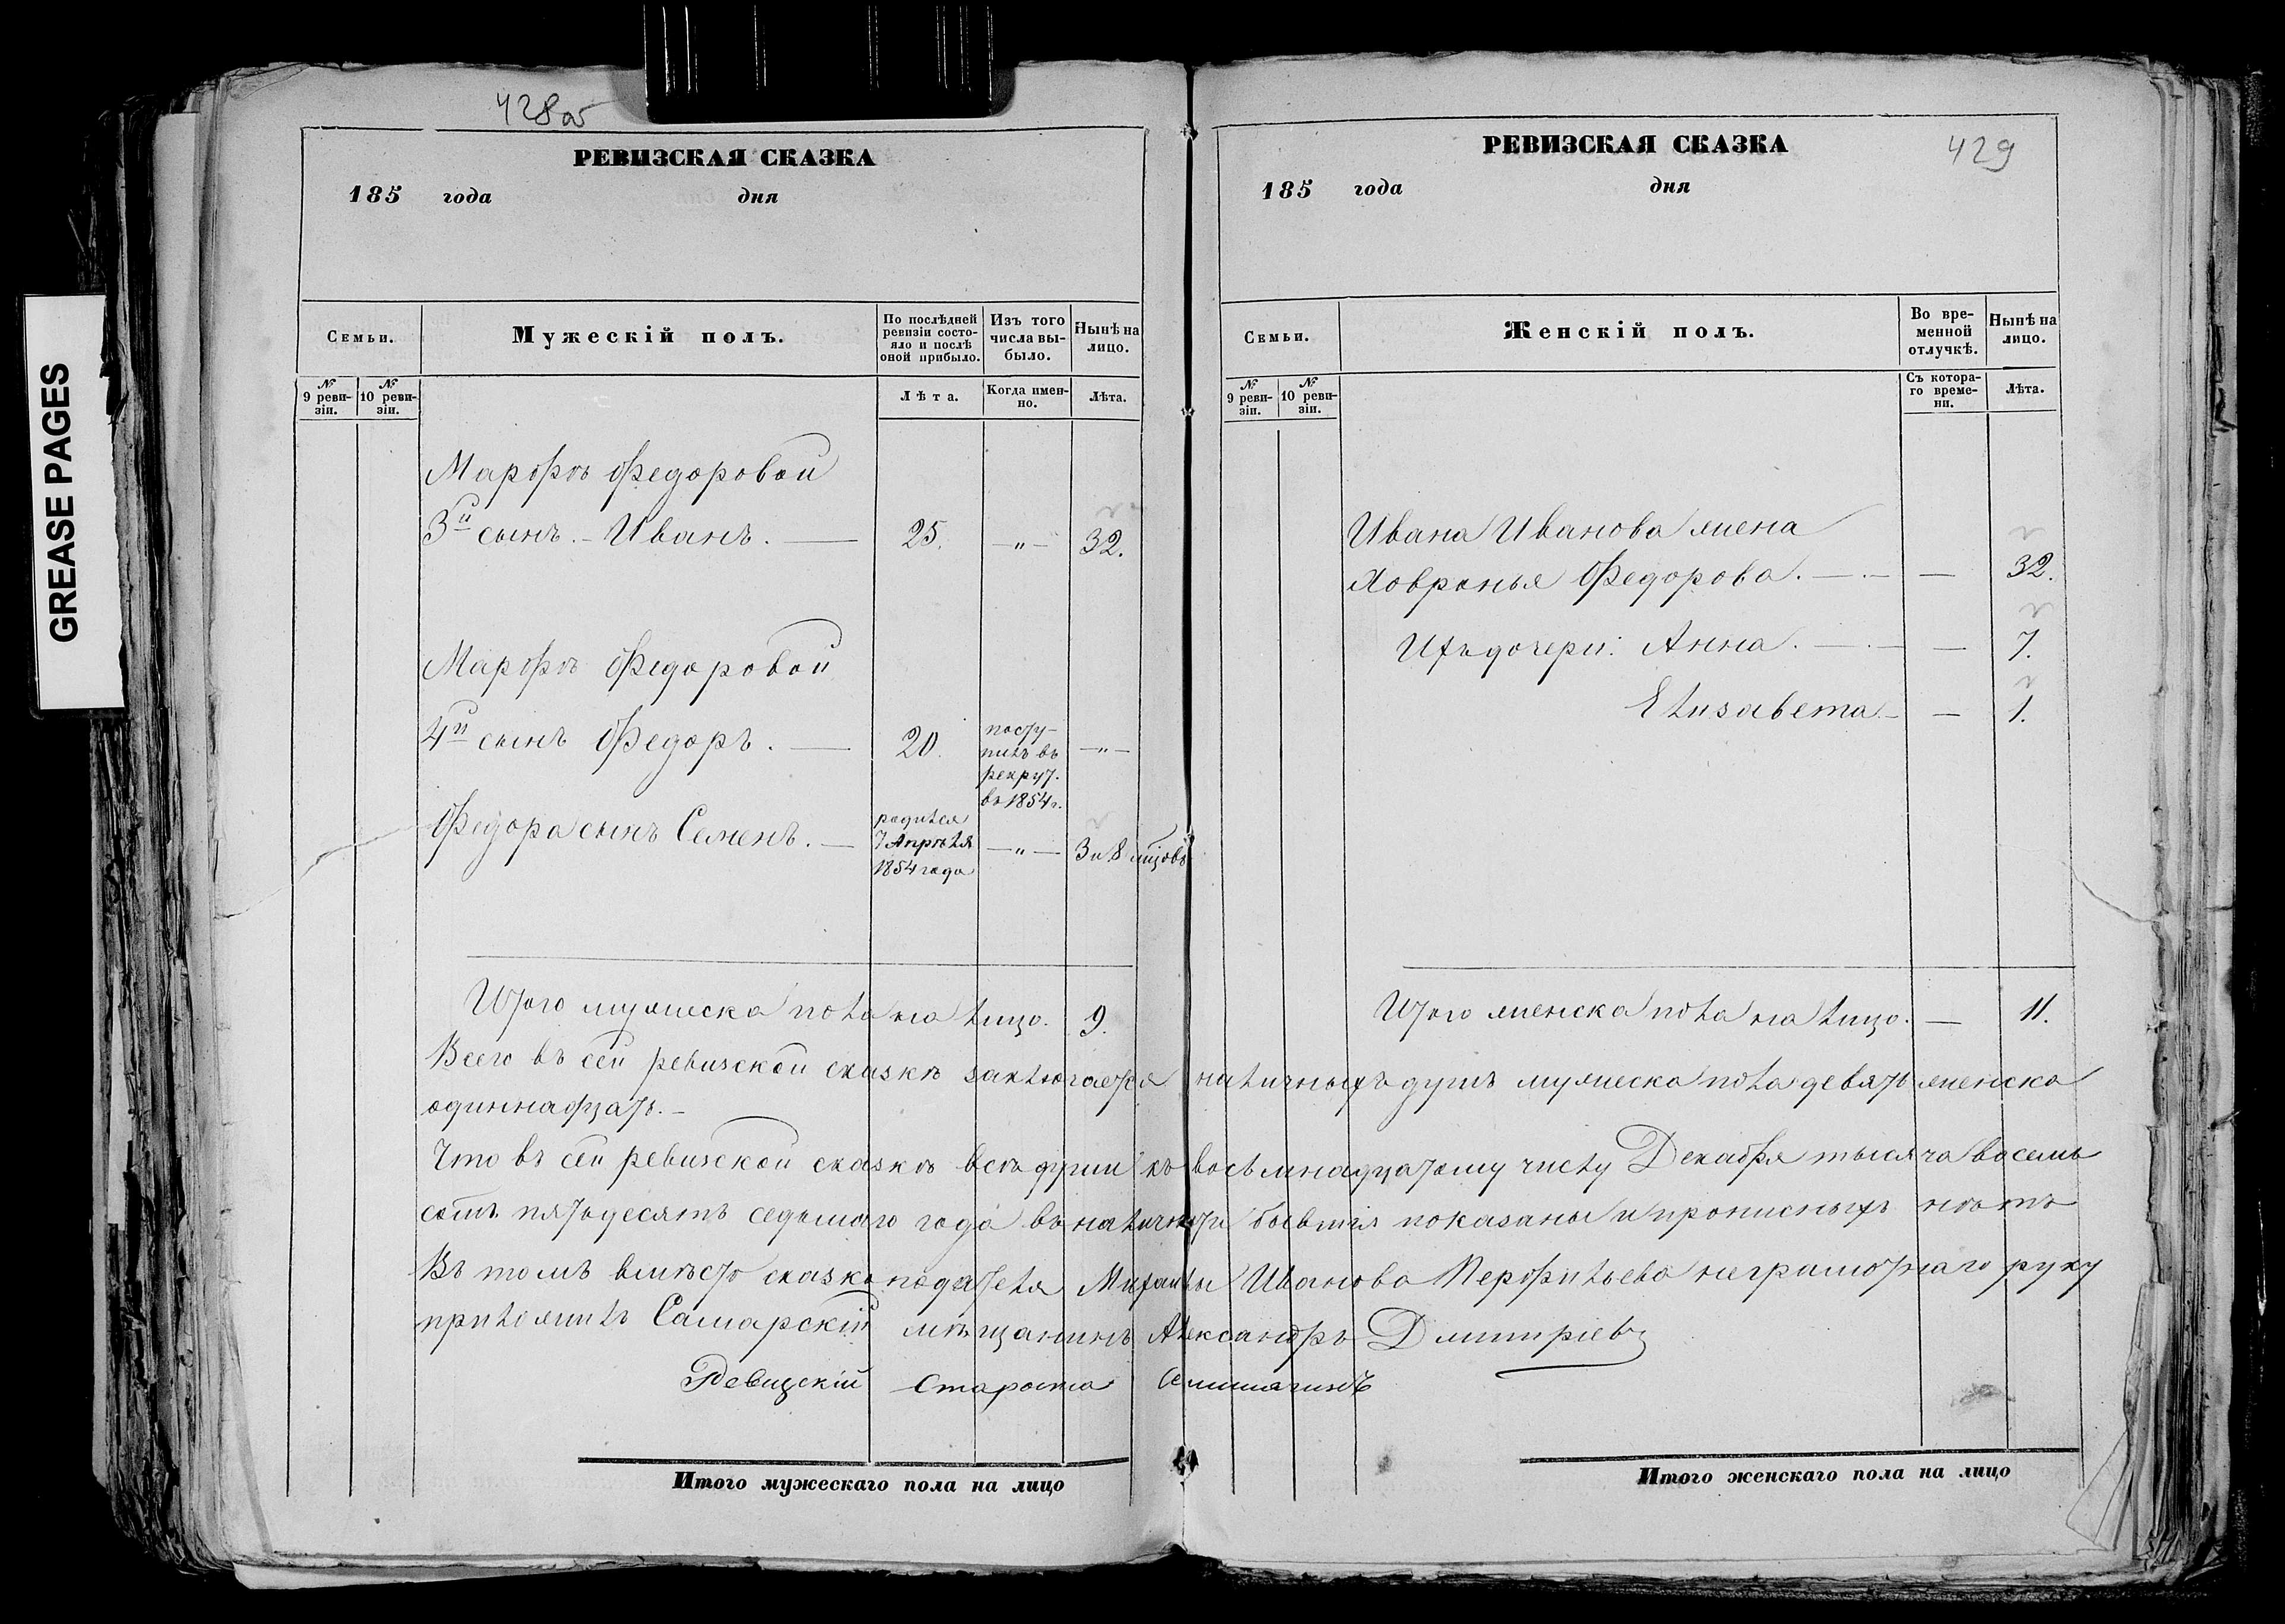 GREASE PAGES
428об
РЕВИЗСКАЯ СКАЗКА
185 года дня
Семьи.
Мужескій полъ.
По послѣдней ревизіи состояло и послѣ оной прибыло.
Изъ того числа выбыло.
Нынѣ на лицо.
№ 9 ревизіи.
№ 10 ревизіи.
Лѣта.
Когда именно.
Лѣта.
Марфы Федоровой
3й сынъ. – Иванъ. — 25. —"— 32.
Марфы Федоровой
4й сынъ Федоръ. — 20. поступилъ въ рекрут. въ 1854 г. —"—
Федора сынъ Семенъ. — родился 7 Апрѣля 1854 года —"— 3 и 8 мцовъ
Итого мужеска пола на лицо. 9.
РЕВИЗСКАЯ СКАЗКА
429
185 года дня
Семьи.
Женскій полъ.
Во временной отлучкѣ.
Нынѣ на лицо.
№ 9 ревизіи.
№ 10 ревизіи.
Съ котораго времени.
Лѣта.
Ивана Иванова жена
Ховронья Федорова. — — 32.
Ихъ дочери: Анна. — — 7.
Елизавета – — 1.
Итого женска пола на лицо. — 11.
Всего въ сей ревизской сказкѣ заключается наличныхъ душъ мужеска пола девять женска
одиннадцать. –
Что въ сей ревизской сказкѣ всѣ души къ восьмнадцатому числу Декабря тысяча восемь
сотъ пятьдесятъ седьмаго года въ наличности бывшія показаны и прописныхъ нѣтъ
Въ томъ вмѣсто сказкоподателя Михаилы Иванова Перфильева неграмотнаго руку
приложилъ Самарскій мѣщанинъ Александръ Дмитріевъ
Ревизскій Староста
Итого мужескаго пола на лицо
Итого женскаго пола на лицо